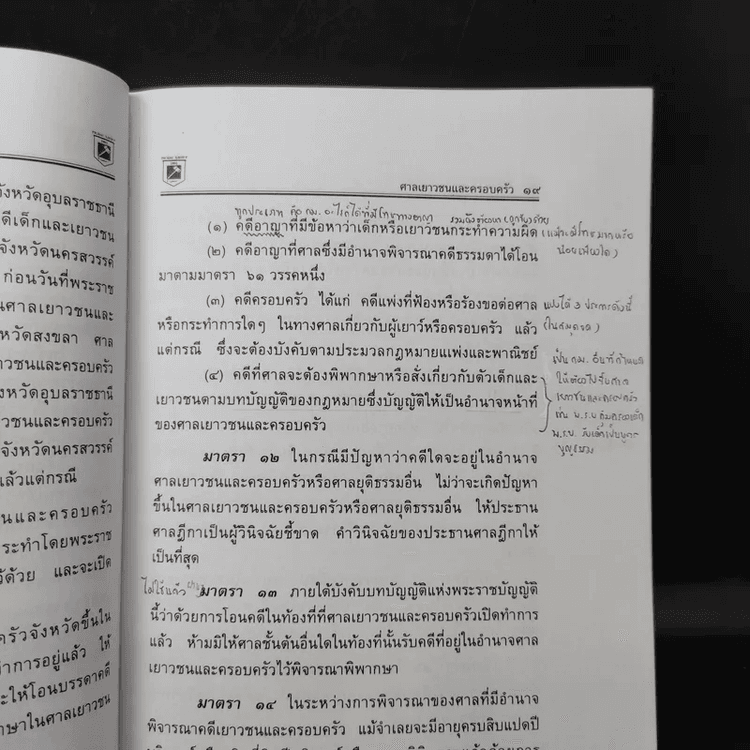 จังหวัดอุบลราชธานี
ดีเด็กและเยาวชน
จังหวัดนครสวรรค์
ก่อนวันที่พระราช
นศาลเยาวชนและ
หวัดสงขลา ศาล
ยาวชนและครอบครัว
จังหวัดอุบลราชธานี
ชนและครอบครัว
จังหวัดนครสวรรค์
แล้วแต่กรณี
นและครอบครัว
ระทำโดยพระราช
วัด้วย และจะเปิด
ครัวจังหวัดขึ้นใน
ทำการอยู่แล้ว ให้
ะให้โอนบรรดาคดี
าษาในศาลเยาวชน
ศาลเยาวชนและครอบครัว ๑๙
(๑) คดีอาญาที่มีข้อหาว่าเด็กหรือเยาวชนกระทำความผิด
(๒) คดีอาญาที่ศาลซึ่งมีอำนาจพิจารณาคดีธรรมดาได้โอน
มาตามมาตรา ๖๑ วรรคหนึ่ง
(๓) คดีครอบครัว ได้แก่ คดีแพ่งที่ฟ้องหรือร้องขอต่อศาล
หรือกระทำการใดๆ ในทางศาลเกี่ยวกับผู้เยาว์หรือครอบครัว แล้ว
แต่กรณี ซึ่งจะต้องบังคับตามประมวลกฎหมายแพ่งและพาณิชย์
(๔) คดีที่ศาลจะต้องพิพากษาหรือสั่งเกี่ยวกับตัวเด็กและ
เยาวชนตามบทบัญญัติของกฎหมายซึ่งบัญญัติให้เป็นอำนาจหน้าที่
ของศาลเยาวชนและครอบครัว
แบ่งได้ 3 ประการดังนี้
เยาวชนและครอบครัว
มาตรา ๑๒ ในกรณีมีปัญหาว่าคดีใดจะอยู่ในอำนาจ
ศาลเยาวชนและครอบครัวหรือศาลยุติธรรมอื่น ไม่ว่าจะเกิดปัญหา
ขึ้นในศาลเยาวชนและครอบครัวหรือศาลยุติธรรมอื่น ให้ประธาน
ศาลฎีกาเป็นผู้วินิจฉัยชี้ขาด คำวินิจฉัยของประธานศาลฎีกาให้
เป็นที่สุด
ไม่ใช้แล้ว
มาตรา ๑๓ ภายใต้บังคับบทบัญญัติแห่งพระราชบัญญัติ
นี้ว่าด้วยการโอนคดีในท้องที่ที่ศาลเยาวชนและครอบครัวเปิดทำการ
แล้ว ห้ามมิให้ศาลชั้นต้นอื่นใดในท้องที่นั้นรับคดีที่อยู่ในอำนาจศาล
เยาวชนและครอบครัวไว้พิจารณาพิพากษา
มาตรา ๑๔ ในระหว่างการพิจารณาของศาลที่มีอำนาจ
พิจารณาคดีเยาวชนและครอบครัว แม้จำเลยจะมีอายุครบสิบแปดปี